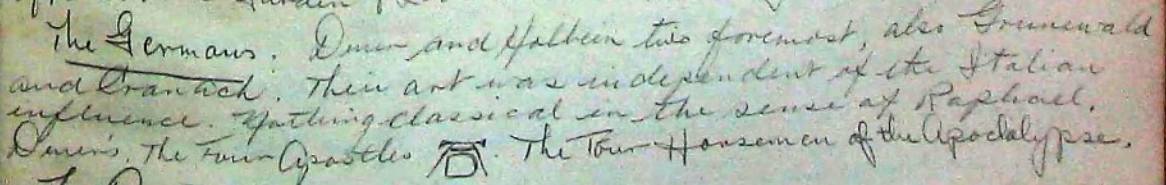 The Germans. Durer and Holbein two foremost, also Grunewald
and Cranach. Their art was independent of the Italian
influence. Nothing classical in the sense of Raphael.
Durer's. The Four Apostles. The Four Horsemen of the Apoclalypse.